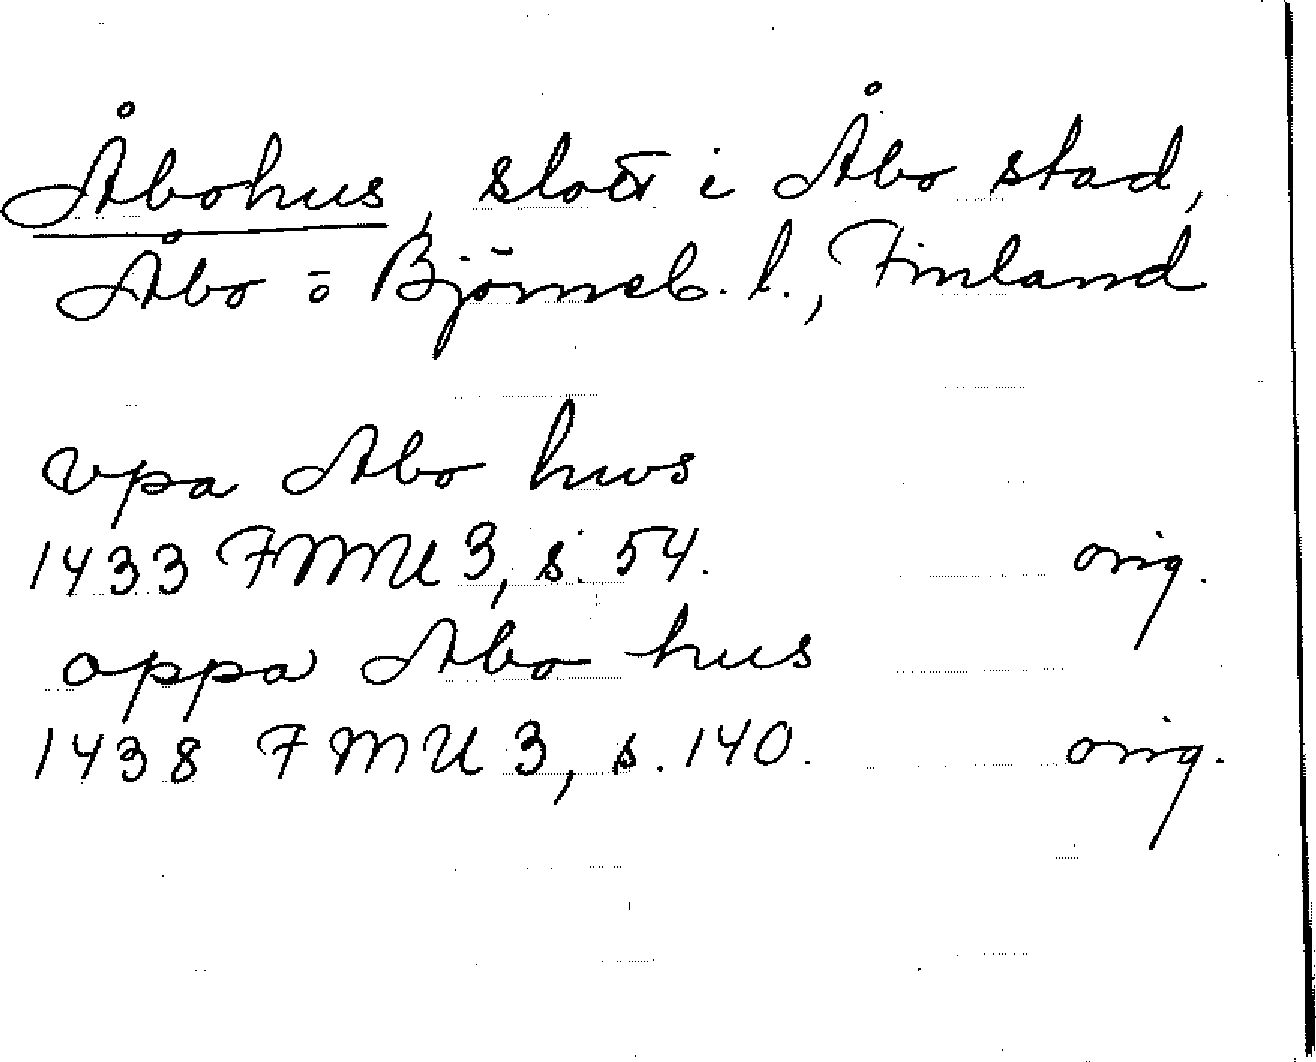 Åbohus, slott i Åbo stad,
Åbo o Björneb. l., Finland
vpa Abo hws
1433 FMU 3, s. 54. orig.
oppa Abo hus
1438 FMU 3, s. 140. orig.